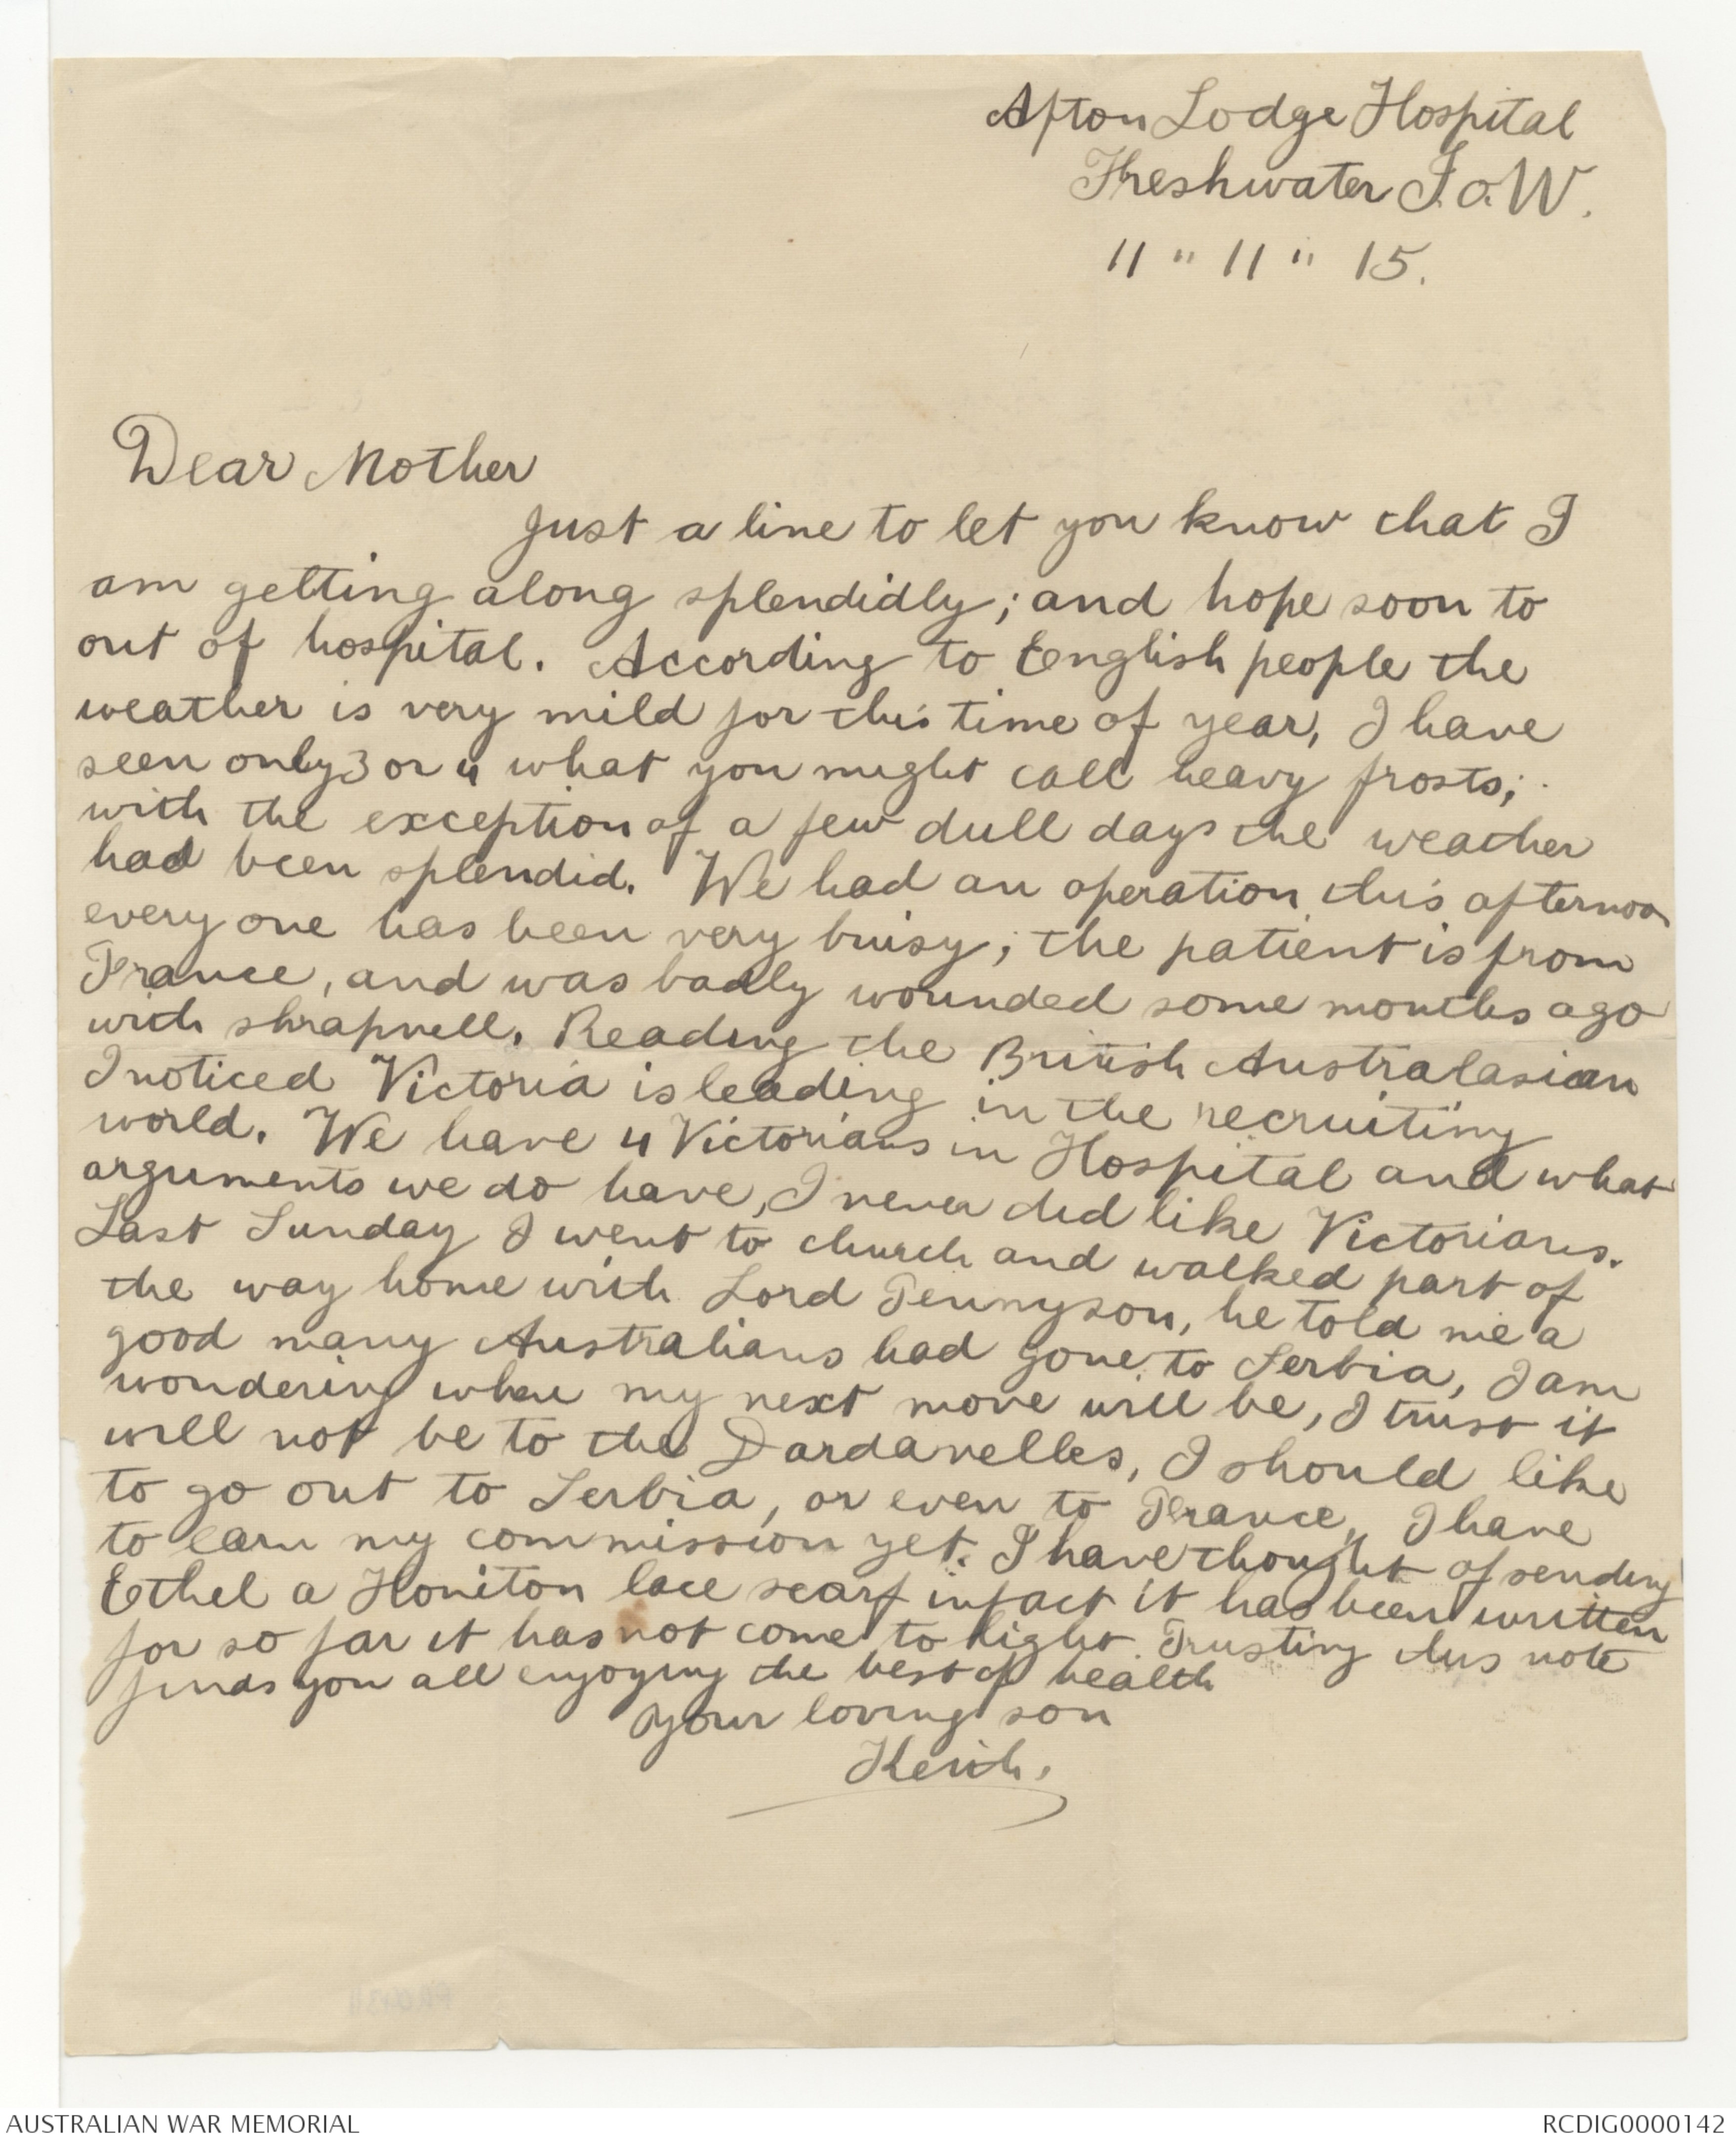 Afton Lodge Hospital
Freshwater I.o.W.
11 " 11 " 15.
Dear Mother
Just a line to let you know that I
am getting along splendidly; and hope soon to
out of hospital. According to English people the
weather is very mild for this time of year, I have
seen only 3 or 4 what you might call heavy frosts;
with the exception of a few dull days the weather
had been splendid. We had an operation this afternoon
every one has been very buisy; the patient is from
France, and was badly wounded some months ago
with shrapnell. Reading the British Australasian
I noticed Victoria is leading in the recruiting
world. We have 4 Victorians in Hospital and what
arguments we do have, I never did like Victorians.
Last Sunday I went to church and walked part of
the way home with Lord Tennyson, he told me a
good many Australians had gone to Serbia, I am
wondering when my next move will be, I trust it
will not be to the Dardanelles, I should like
to go out to Serbia, or even to France, I have
to earn my commission yet. I have thought of sending
Ethel a Honiton lace scarf infact it has been written
for so far it has not come to light. Trusting this note
finds you all enjoying the best of health
Your loving son
Keith.
AUSTRALIAN WAR MEMORIAL
RCDIG0000142